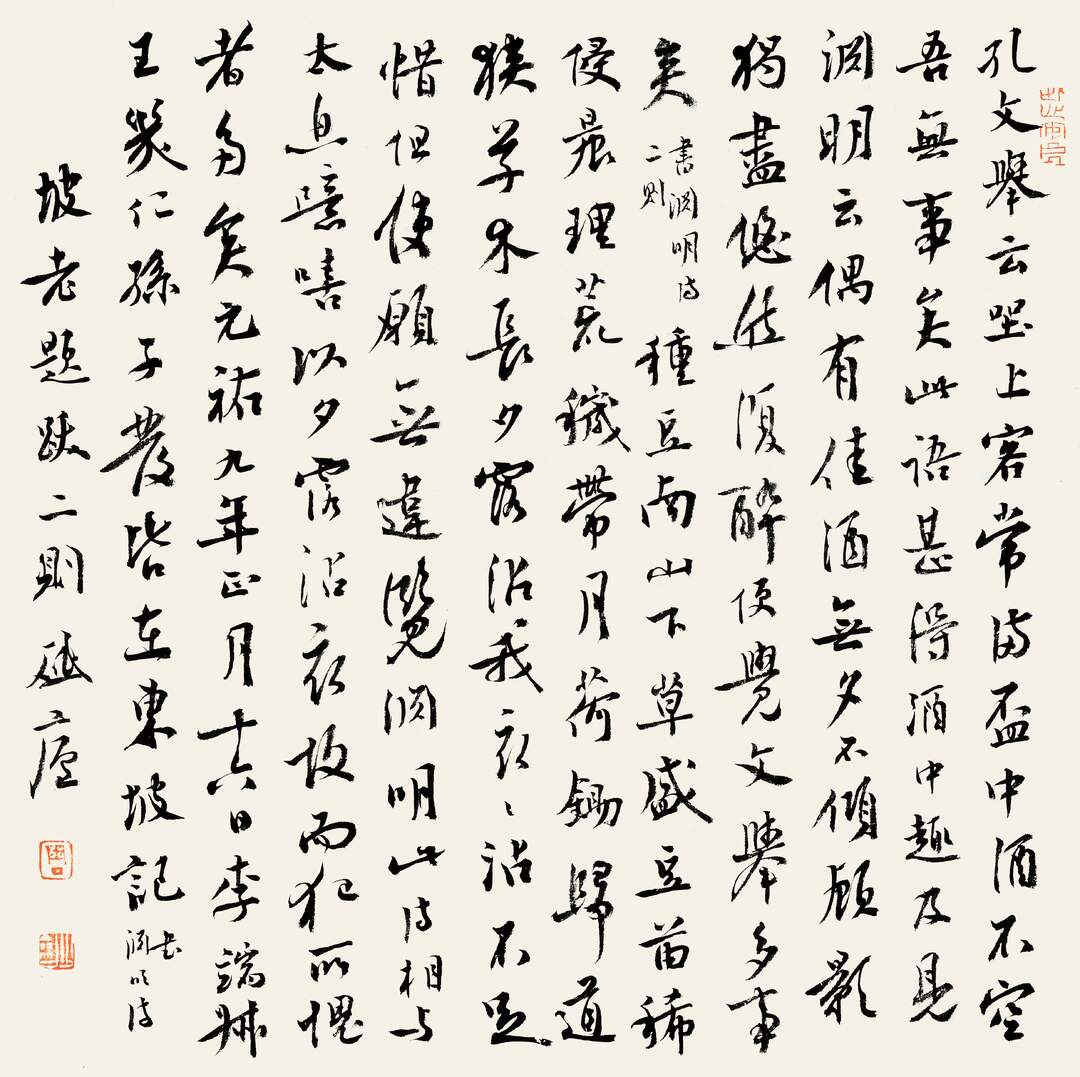 孔文舉云坐上客常滿盃中酒不空
吾無事矣此語甚得酒中趣及見
淵明云偶有佳酒無夕不傾顧影
獨盡悠然復醉便覺文舉多事
矣書淵明詩二則種豆南山下草盛豆苗稀
侵晨理荒穢帶月荷鋤歸道
狹草木長夕露沾我衣衣沾不足
惜但使願無違覽淵明此詩相與
太息噫嘻以夕露沾衣故而犯所愧
者多矣元祐九年正月十六日李端叔
王幾仁孫子發皆在東坡記書淵明詩
坡老題跋二則